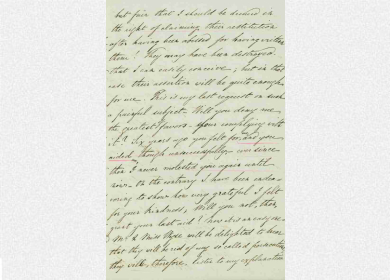 but fair that I should be secured in
the right of claiming their restitution
after having been abused for having written
them? They may have been destroyed
that I can easily conceive; but in that
case their assertion will be quite enough
for me. This is my last request on such
a painful subject. Will you deny me
the greatest favor - your complying with
it? Six years ago you felt for, and you
aided, though unsuccessfully - ever since
then I never molested you again until
now. On the contrary I have been endea-
voring to show how very grateful I felt
for your kindness, Will you not, then,
your last act?
Mr. & Miss will be delighted to hear
that they will be rid of my so called persecution
they will, therefore, listen to my explanation